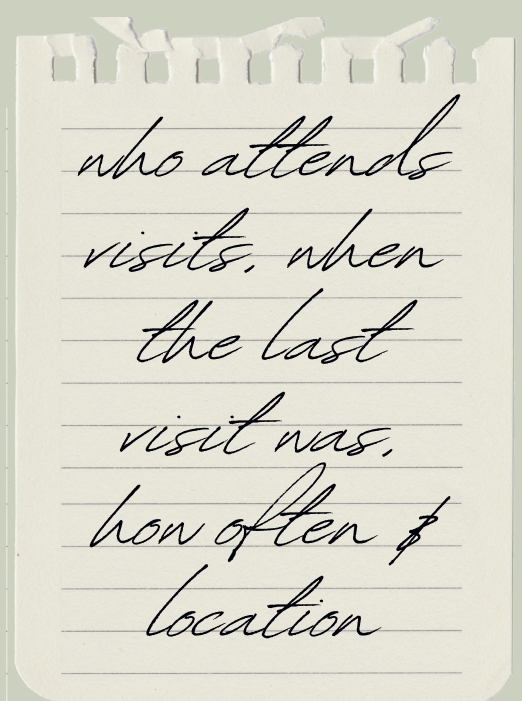 who attends
visits, when
the last
visit was,
how often &
location